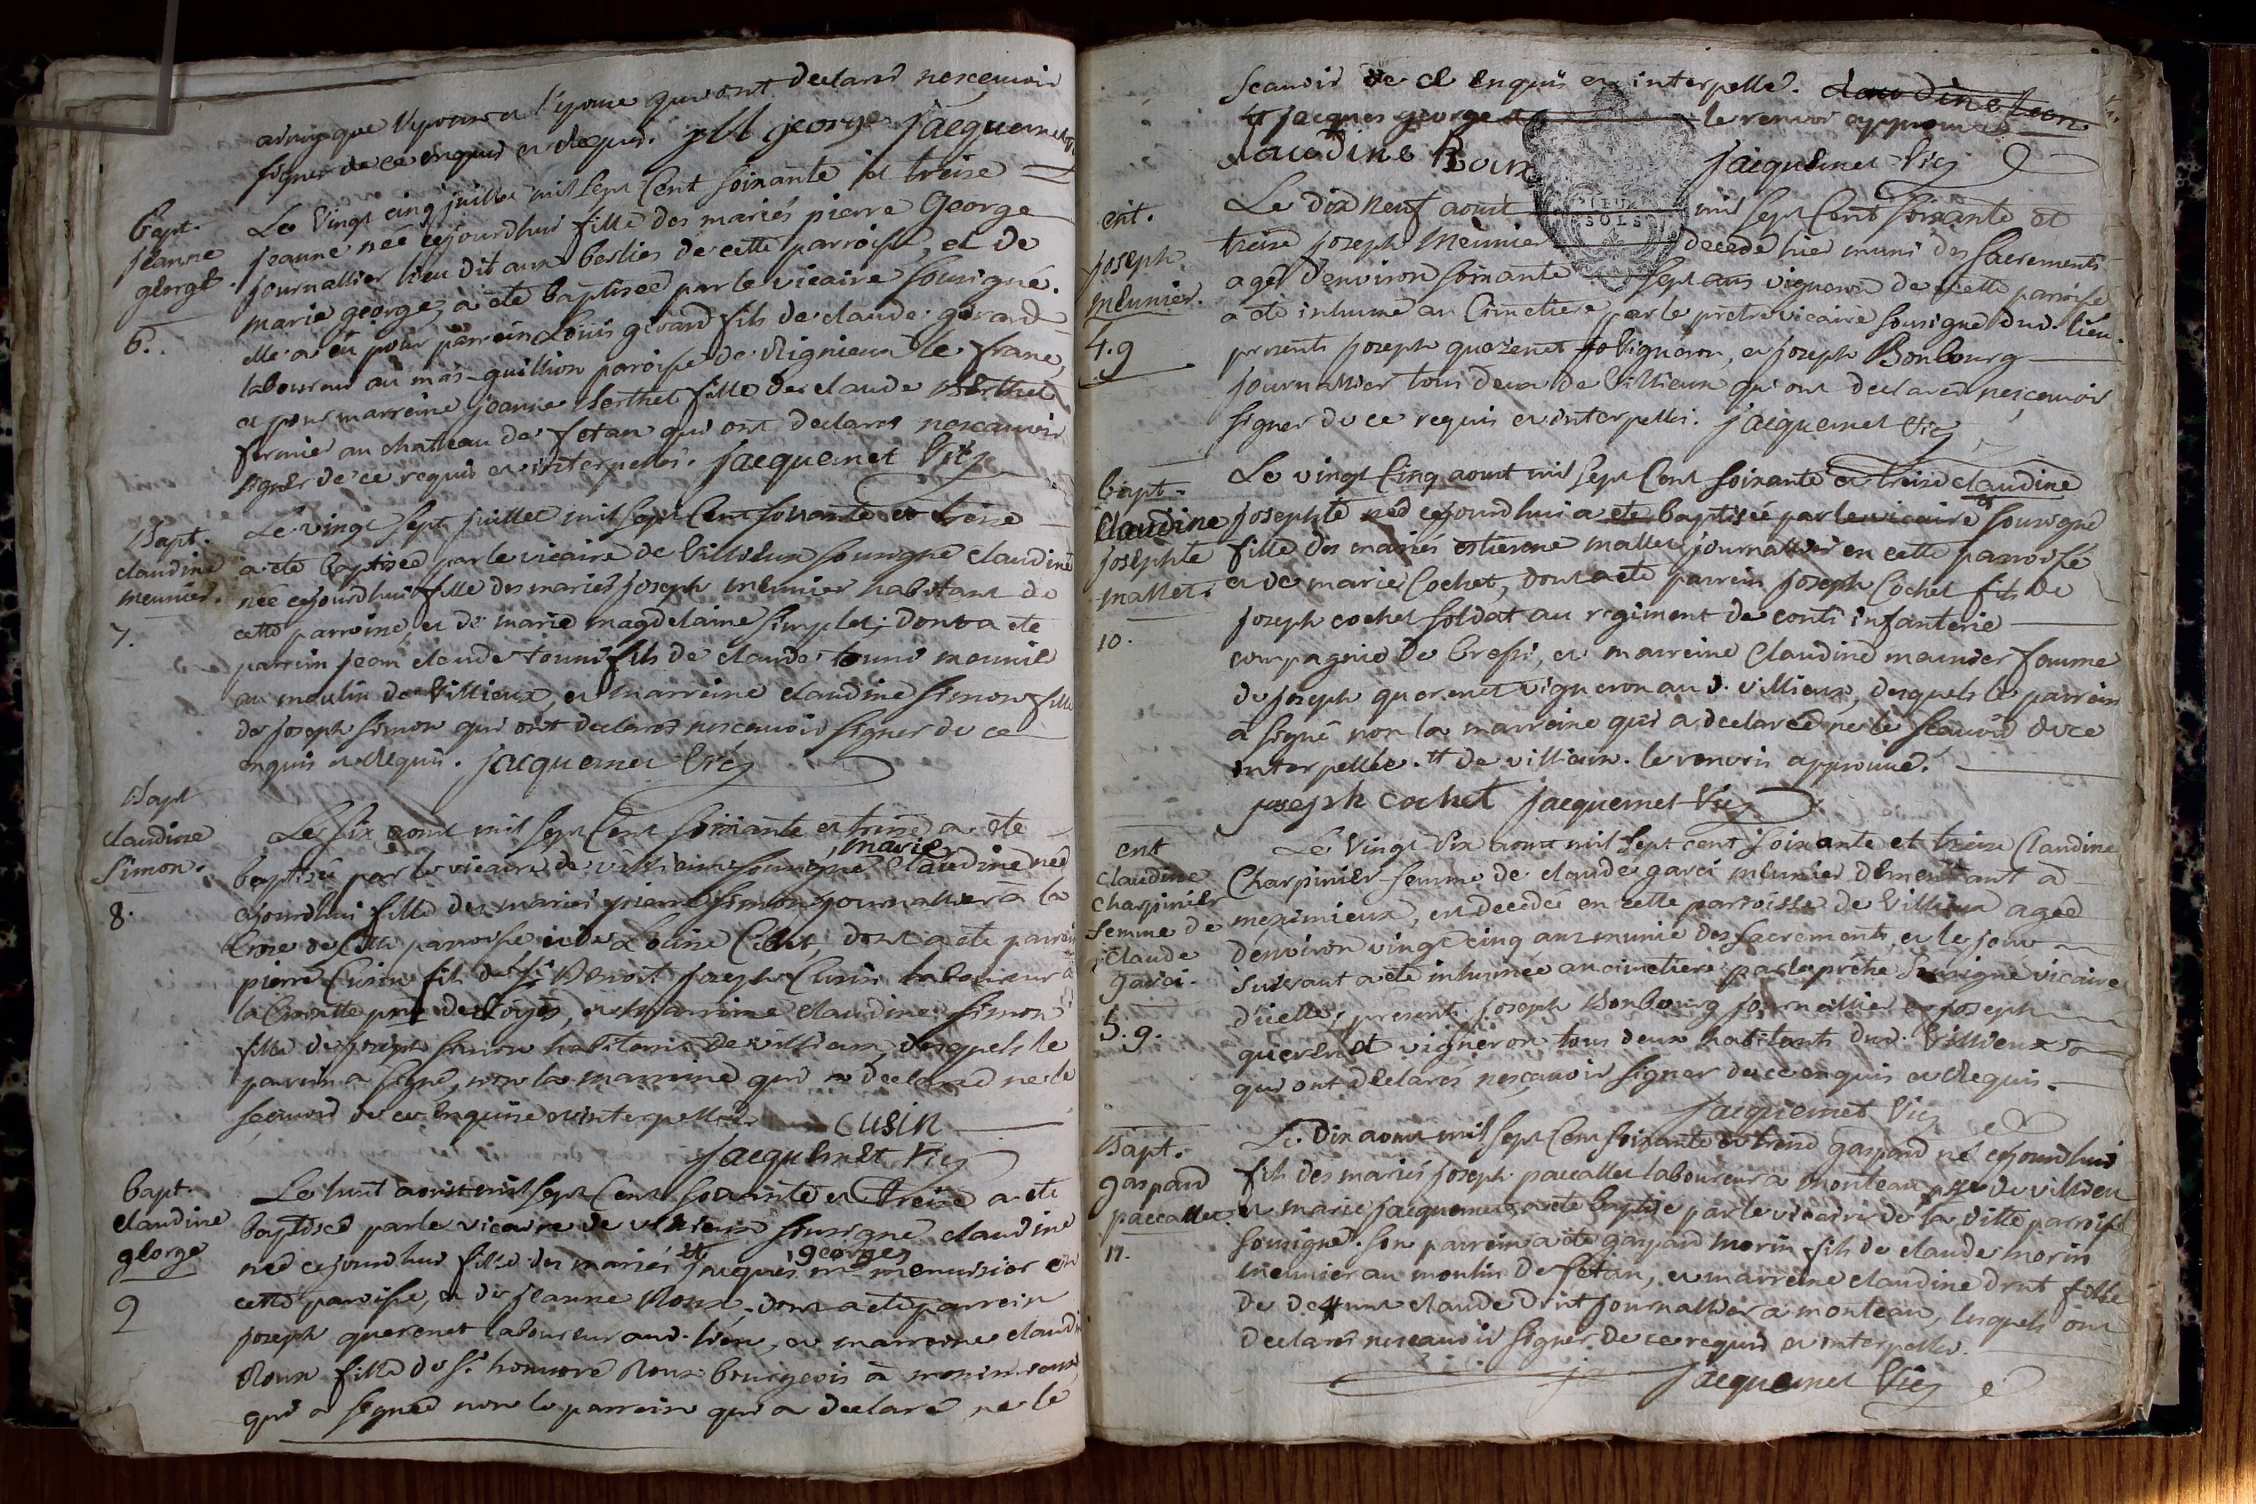 ainsy que l'epoux et l'epouse qui ont declaré ne scavoir
signer de ce enquis et requis. george jacquemet
Bapt.
jeanne
george.
6.
Le Vingt cinq juillet mil sept Cent soixante et treize
jeanne née cejourdhui fille des mariés pierre George
journallier lieu dit aux berlies de cette parroisse, et de
marie george, a été baptisée par le vicaire soussigné.
elle a eu pour parrein Louis girard fils de claude girard
laboureur au mas guillion paroisse de Rignieux le franc,
et pour marreine jeanne berthet fille de claude Berthet
fermier au chateau de fetan qui ont declaré ne scavoir
signer de ce requis et interpellés. jacquemet Vic
Bapt.
claudine
meunier.
7.
Le vingt sept juillet mil sept Cent soixante et treize
a été baptisée par le vicaire de Villieux soussigné claudine
née cejourdhui fille des mariés joseph meunier habitant de
cette parroisse, et de marie magdelaine simplet; dont a été
parrein jean claude tounis fils de claude tounis meunier
au moulin de Villieux, et marreine claudine simon fille
de joseph simon qui ont declaré ne scavoir signer de ce
enquis et requis. jacquemet Vic
Bapt
claudine
simon.
8.
Le six aout mil sept Cent soixante et treize a été
baptisée par le vicaire de villieux soussigné marie claudine née
cejourdhui fille des mariés pierre simon journallier à la
Croze de cette parroisse et de Louise Cellet, dont a été parrein
pierre Cusin fils de Sr. Benoit joseph Cusin laboureur à
la Croisette prsse de Loyes, et marreine claudine simon
fille de joseph simon habitant de villieux, desquels le
parrein a signé, non la marreine qui a declaré ne le
scavoir de ce enquise et interpellée. cusin
jacquemet Vic
bapt.
claudine
george
9
Le huit aout mil sept Cent soixante et treize a été
baptisée par le vicaire de villieux soussigné claudine
née cejourdhui fille des mariés jacques george me menuisier en
cette paroisse, et de jeanne Roux, dont a été parrein
joseph querenet laboureur aud. lieu, et marreine claudine
Roux fille de Sr. honnoré Roux bourgeois à meximieux
qui a signé non le parrein qui a declaré ne le
scavoir de ce enquis et interpellé. claudine Roux
jacques george le renvoi approuvé
claudine Roux jacquemet Vic
ent.
joseph
meunier.
4.9
Le dix neuf aout mil sept Cent soixante et
treize joseph Meunier decedé hier muni des sacrements
agé d'environ soixante sept ans vigneron de cette parroisse
a été inhumé au Cimetiere par le pretre vicaire soussigné dud. lieu.
presents joseph querenet vigneron, et joseph Bonbourg
journallier tous deux de Villieux qui ont declaré ne scavoir
signer de ce requis et interpellés. jacquemet Vic
bapt.
Claudine
josephte
mallet.
10.
Le vingt Cinq aout mil sept Cent soixante et treize claudine
josephte née cejourdhui a été baptisée par le vicaire soussigné
fille des mariés estienne mallet journallier en cette parroisse
et de marie Cochet, dont a été parrein joseph Cochet fils de
joseph cochet soldat au regiment de conti infanterie
compagnie de bressi, et marreine Claudine meunier femme
de joseph querenet vigneron aud. villieux, desquels le parrein
a signé non la marreine qui a declaré ne le scavoir de ce
interpellée. tt de villieux. le renvoi approuvé.
joseph cochet jacquemet Vic
ent
Claudine
charpinier
femme de
Claude
garci.
5.9.
Le Vingt six aout mil sept cent soixante et treize Claudine
Charpinier femme de claude garci meunier demeurant à
meximieux, est decedée en cette parroisse de Villieux agée
d'environ vingt cinq ans munie des sacrements, et le jour
suivant a été inhumée au cimetiere par le prêtre soussigné vicaire
d'icelle, presents joseph Bonbourg journallier et joseph
querenet vigneron tous deux habitants dud. Villieux
qui ont declarés ne scavoir signer de ce enquis et requis.
jacquemet Vic
Bapt.
gaspard
paccallet.
11.
Le Dix aout mil sept Cent soixante et treize gaspard né cejourdhui
fils des mariés joseph paccallet laboureur a monteau prsse de villieu
et marie jacquemet, a été baptisé par le vicaire de la ditte parroisse
soussigné. son parrein a été gaspard morin fils de claude morin
meunier au moulin de fetan, et marreine claudine drut fille
de defunt claude drut journallier a monteau, lesquels ont
declaré ne scavoir signer de ce requis et interpellés.
jacquemet Vic